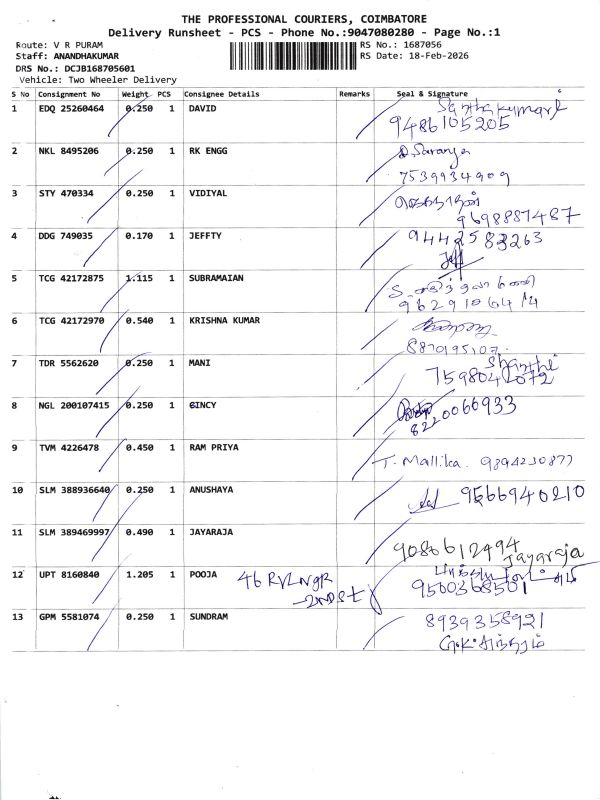 THE PROFESSIONAL COURIERS, COIMBATORE
Delivery Runsheet - PCS - Phone No.:9047080280 - Page No.:1
Route: V R PURAM RS No.: 1687056
Staff: ANANDHAKUMAR RS Date: 18-Feb-2026
DRS No.: DCJB168705601
Vehicle: Two Wheeler Delivery
S No Consignment No Weight PCS Consignee Details Remarks Seal & Signature
1 EDQ 25260464 0.250 1 DAVID
9486105205
2 NKL 8495206 0.250 1 RK ENGG D. Saranya
7539934909
3 STY 470334 0.250 1 VIDIYAL
9698887487
4 DDG 749035 0.170 1 JEFFTY 9442583263
5 TCG 42172875 1.115 1 SUBRAMAIAN
9629106414
6 TCG 42172970 0.540 1 KRISHNA KUMAR
8870195107
7 TDR 5562620 0.250 1 MANI Shanthi
7598042072
8 NGL 200107415 0.250 1 CINCY
8220066933
9 TVM 4226478 0.450 1 RAM PRIYA T. Mallika. 9894230877
10 SLM 388936640 0.250 1 ANUSHAYA 9566940210
11 SLM 389469997 0.490 1 JAYARAJA 9080612494
Jayaraja
12 UPT 8160840 1.205 1 POOJA 46 RVL NGR
2ND ST
9500368501
13 GPM 5581074 0.250 1 SUNDRAM 8939358921
G.K. சுந்தரம்